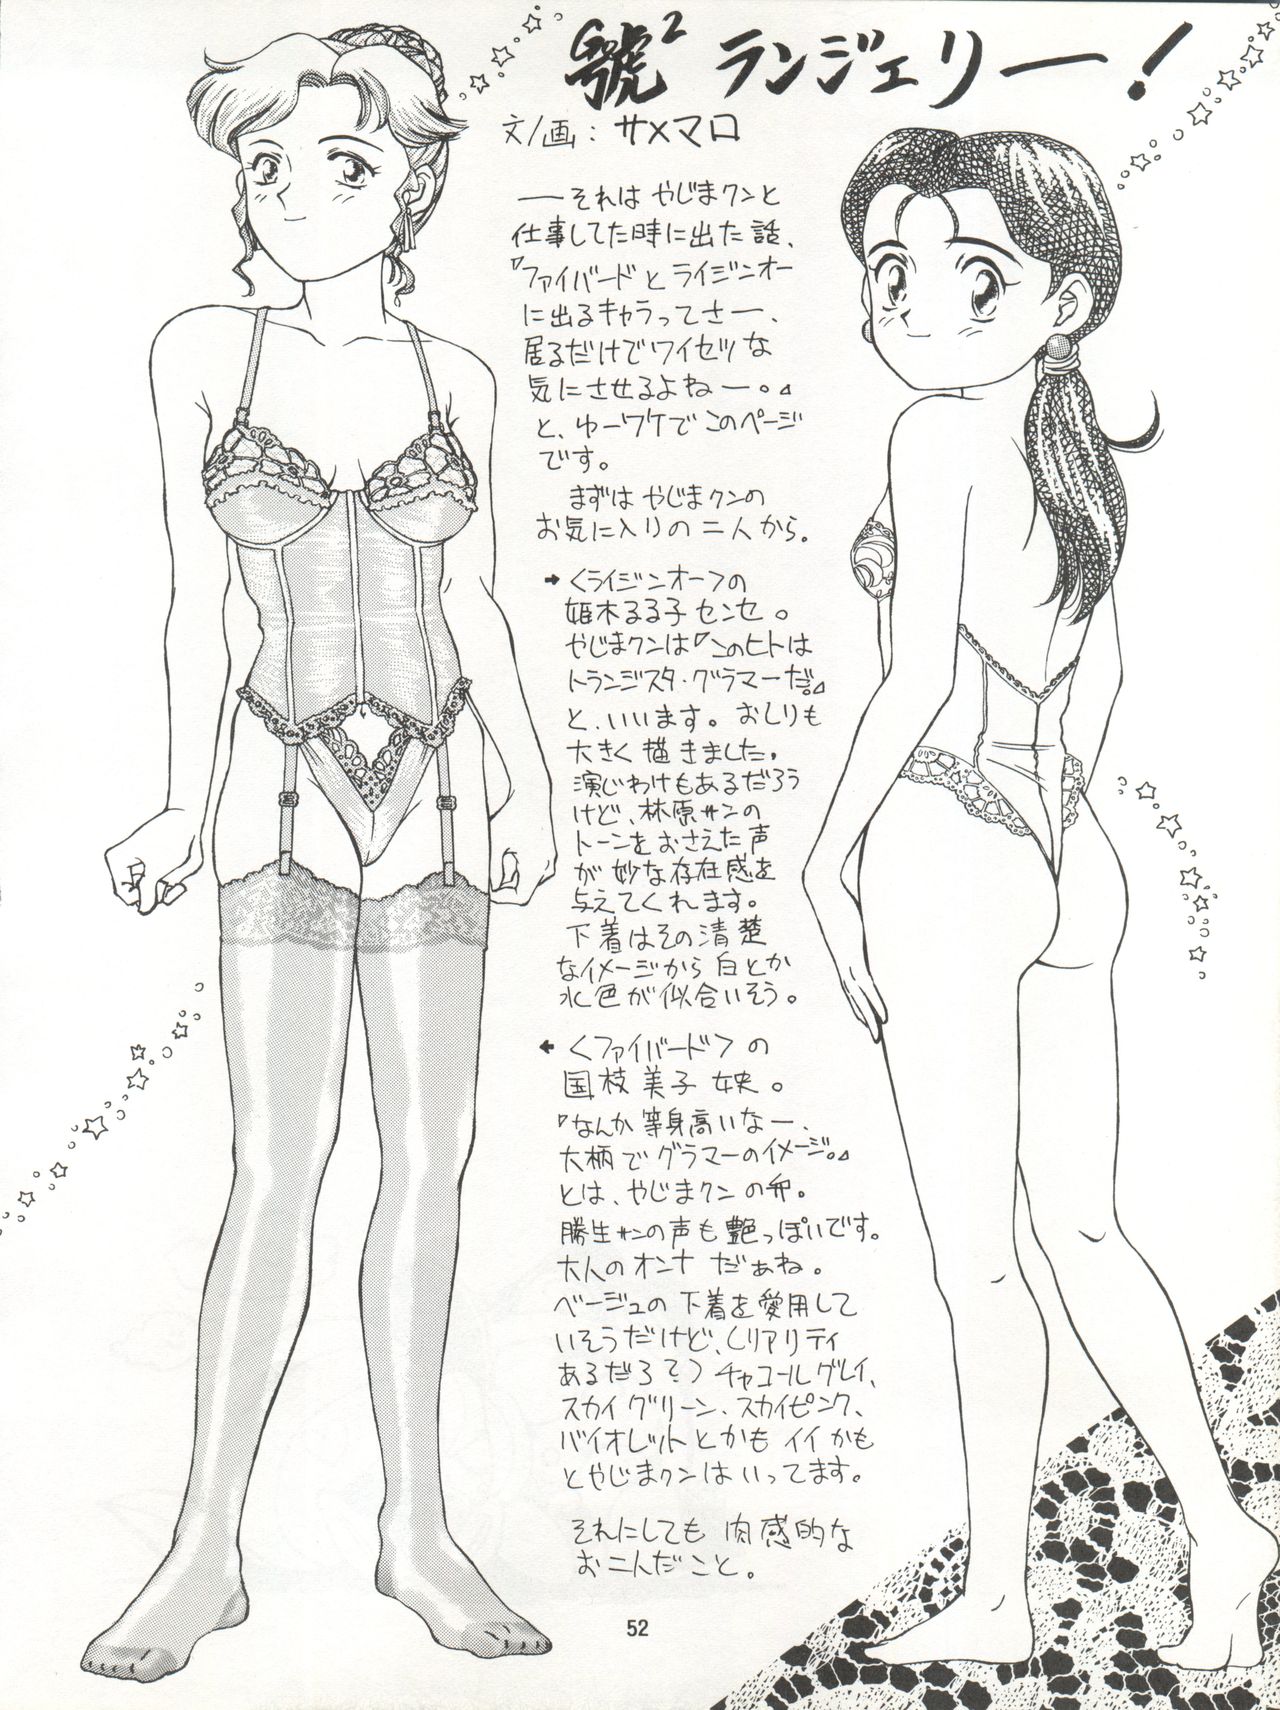 號² ランジェリー!
文/画:サメマロ
―それは やじまクンと
仕事してた時に出た話、
『ファイバードとライジンオー
に出るキャラってさー、
居るだけでワイセツな
気にさせるよねー。』
と、ゆーワケでこのページ
です。
まずは やじまクンの
お気に入りの二人から。
→〈ライジンオー〉の
姫木るる子センセ。
やじまクンは『このヒトは
トランジスタ・グラマーだ。』
と、いいます。おしりも
大きく描きました。
演じわけもあるだろう
けど、林原サンの
トーンをおさえた声
が妙な存在感を
与えてくれます。
下着はその清楚
なイメージから白とか
水色が似合いそう。
←〈ファイバード〉の
国枝美子女史。
『なんか等身高いなー、
大柄でグラマーのイメージ。』
とは、やじまクンの弁。
勝生サンの声も艶っぽいです。
大人のオンナだぁね。
ベージュの下着を愛用して
いそうだけど、(リアリティ
あるだろそ) チャコールグレイ、
スカイグリーン、スカイピンク、
バイオレットとかもイイかも
とやじまクンはいってます。
それにしても肉感的な
お二人だこと。
52